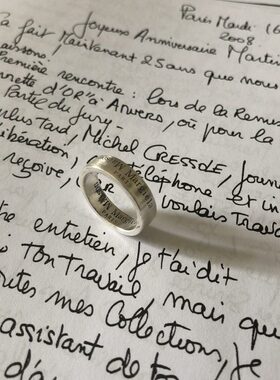 Paris Mardi 16
2008.
Joyeux Anniversaire Martin
a fait Maintenant 25 ans que nous
aissons.
Première rencontre: lors de la Remis
nette d'OR à Anvers, où pour la
Partie du Jury.
lus tard, Michel CRESSOLE, Journ
libération, téléphone et in
reçoive, voulais Trava
Margiela
Margiela
tre entretien, je t'ai dit
Ton Travail, mais que
utes mes Collections, je
assistant de to